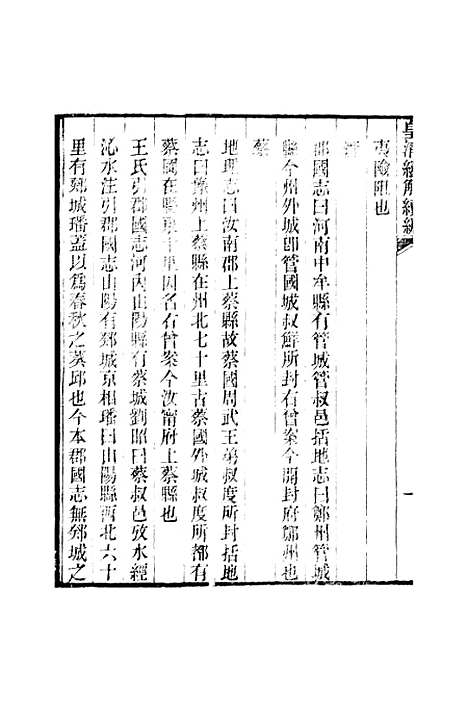 皇清經解續編
一
夷險阻也
管
郡國志曰河南中牟縣有管城管叔邑括地志曰鄭州管城
縣今州外城即管國城叔鮮所封右曾案今開封府鄭州也
蔡
地理志曰汝南郡上蔡縣故蔡國周武王弟叔度所封括地
志曰豫州上蔡縣在州北七十里古蔡國外城叔度所都有
蔡國在縣東十里因名右曾案今汝甯府上蔡縣也
王氏引郡國志河內山陽縣有蔡城劉昭曰蔡叔邑攷水經
沁水注引郡國志山陽有郟城京相璠曰山陽縣西北六十
里有郟城璠蓋以爲春秋之葵邱也今本郡國志無郟城之